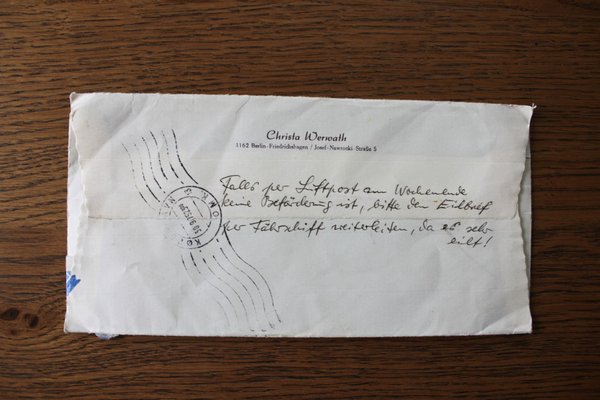 Christa Werwath
1162 Berlin-Friedrichshagen / Josef-Nawrocki-Straße 5
Falls per Luftpost am Wochenende
keine Beförderung ist, bitte den Eilbrief
per Fährschiff weiterleiten, da es sehr
eilt!